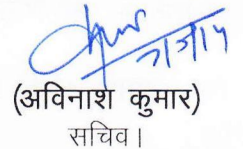 (अविनाश कुमार)
सचिव।